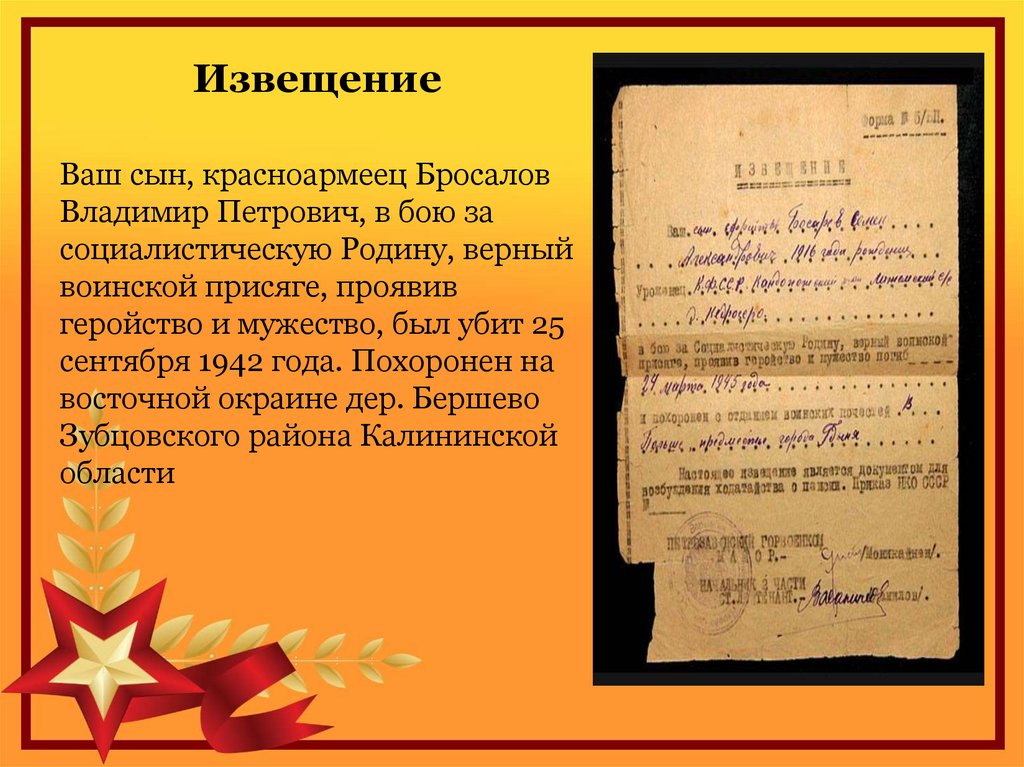 Извещение
Ваш сын, красноармеец Бросалов
Владимир Петрович, в бою за
социалистическую Родину, верный
воинской присяге, проявив
геройство и мужество, был убит 25
сентября 1942 года. Похоронен на
восточной окраине дер. Бершево
Зубцовского района Калининской
области
Форма № 6/БП.
ИЗВЕЩЕНИЕ
Ваш сын, Семен
Александрович 1916 года рождения
Уроженец К.Ф.С.С.Р.
д.
в бою за Социалистическую Родину, верный воинской
присяге, проявив геройство и мужество погиб
24 марта 1945 года
и похоронен с отданием воинских почестей в
Польше, предместье города Гдыня
Настоящее извещение является документом для
возбуждения ходатайства о пенсии. Приказ НКО СССР
№
ПЕТРОЗАВОДСКИЙ ГОРВОЕНКОМ
МАЙОР.-
НАЧАЛЬНИК 2 ЧАСТИ
СТ. ЛЕЙТЕНАНТ.-